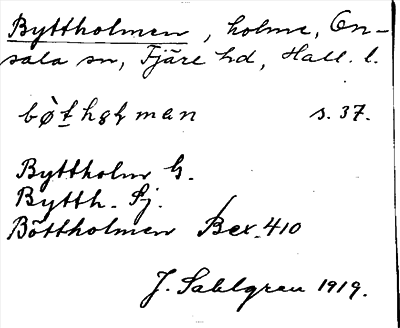 Byttholmen, holme, On-
sala sn, Fjäre hd, Hall. l.
bòthɷlman s. 37.
Byttholm G.
Bytth. Sj.
Böttholmen Bex. 410
J. Sahlgren 1919.